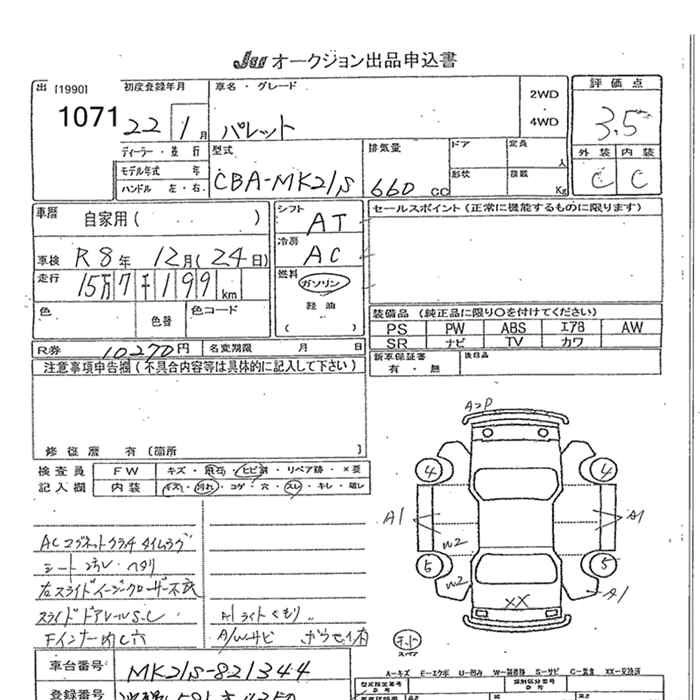 JU オークション出品申込書
出 [1990] 初度登録年月 車名・グレード 2WD 評価点
1071 22 1月 パレット 4WD 3.5
ディーラー・並行 型式 排気量 ドア 定員 人 外装 内装
モデル年式 年 CBA-MK21S 660 CC 形状 積載 Kg C C
ハンドル 左・右
車歴 自家用( ) シフト AT セールスポイント(正常に機能するものに限ります)
車検 R8年 12月(24日) 冷房 AC
走行 15万7千199km 燃料 ガソリン
軽油
( )
色 色替 色コード 装備品(純正品に限り○を付けてください)
PS PW ABS エアB AW
SR ナビ TV カワ
R券 10270円 名変期限 月 日 新車保証書 有・無 後日品
注意事項申告欄(不具合内容等は具体的に記入して下さい)
修復歴 有(箇所 )
検査員 FW キズ・飛石・ヒビ割・リペア跡・×要
記入欄 内装 キズ・汚れ・コゲ・穴・スレ・キレ・破レ
AP
4 4
A1 A1
W2
5 5
W2 A1
XX
ACマグネットクラッチタイムラグ
シート汚レ・ヘタリ
左スライドイージークローザー不良
スライドドアレールS.C
Fインナー内C穴
ライトくもり
A/Wサビ
スペア
A=キズ E=エクボ U=凹み W=補修跡 S=サビ C=腐食 XX=交換済
車台番号 MK21S-821344
登録番号